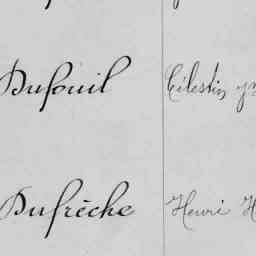 Dufouil Célestin
Dufrèche Henri